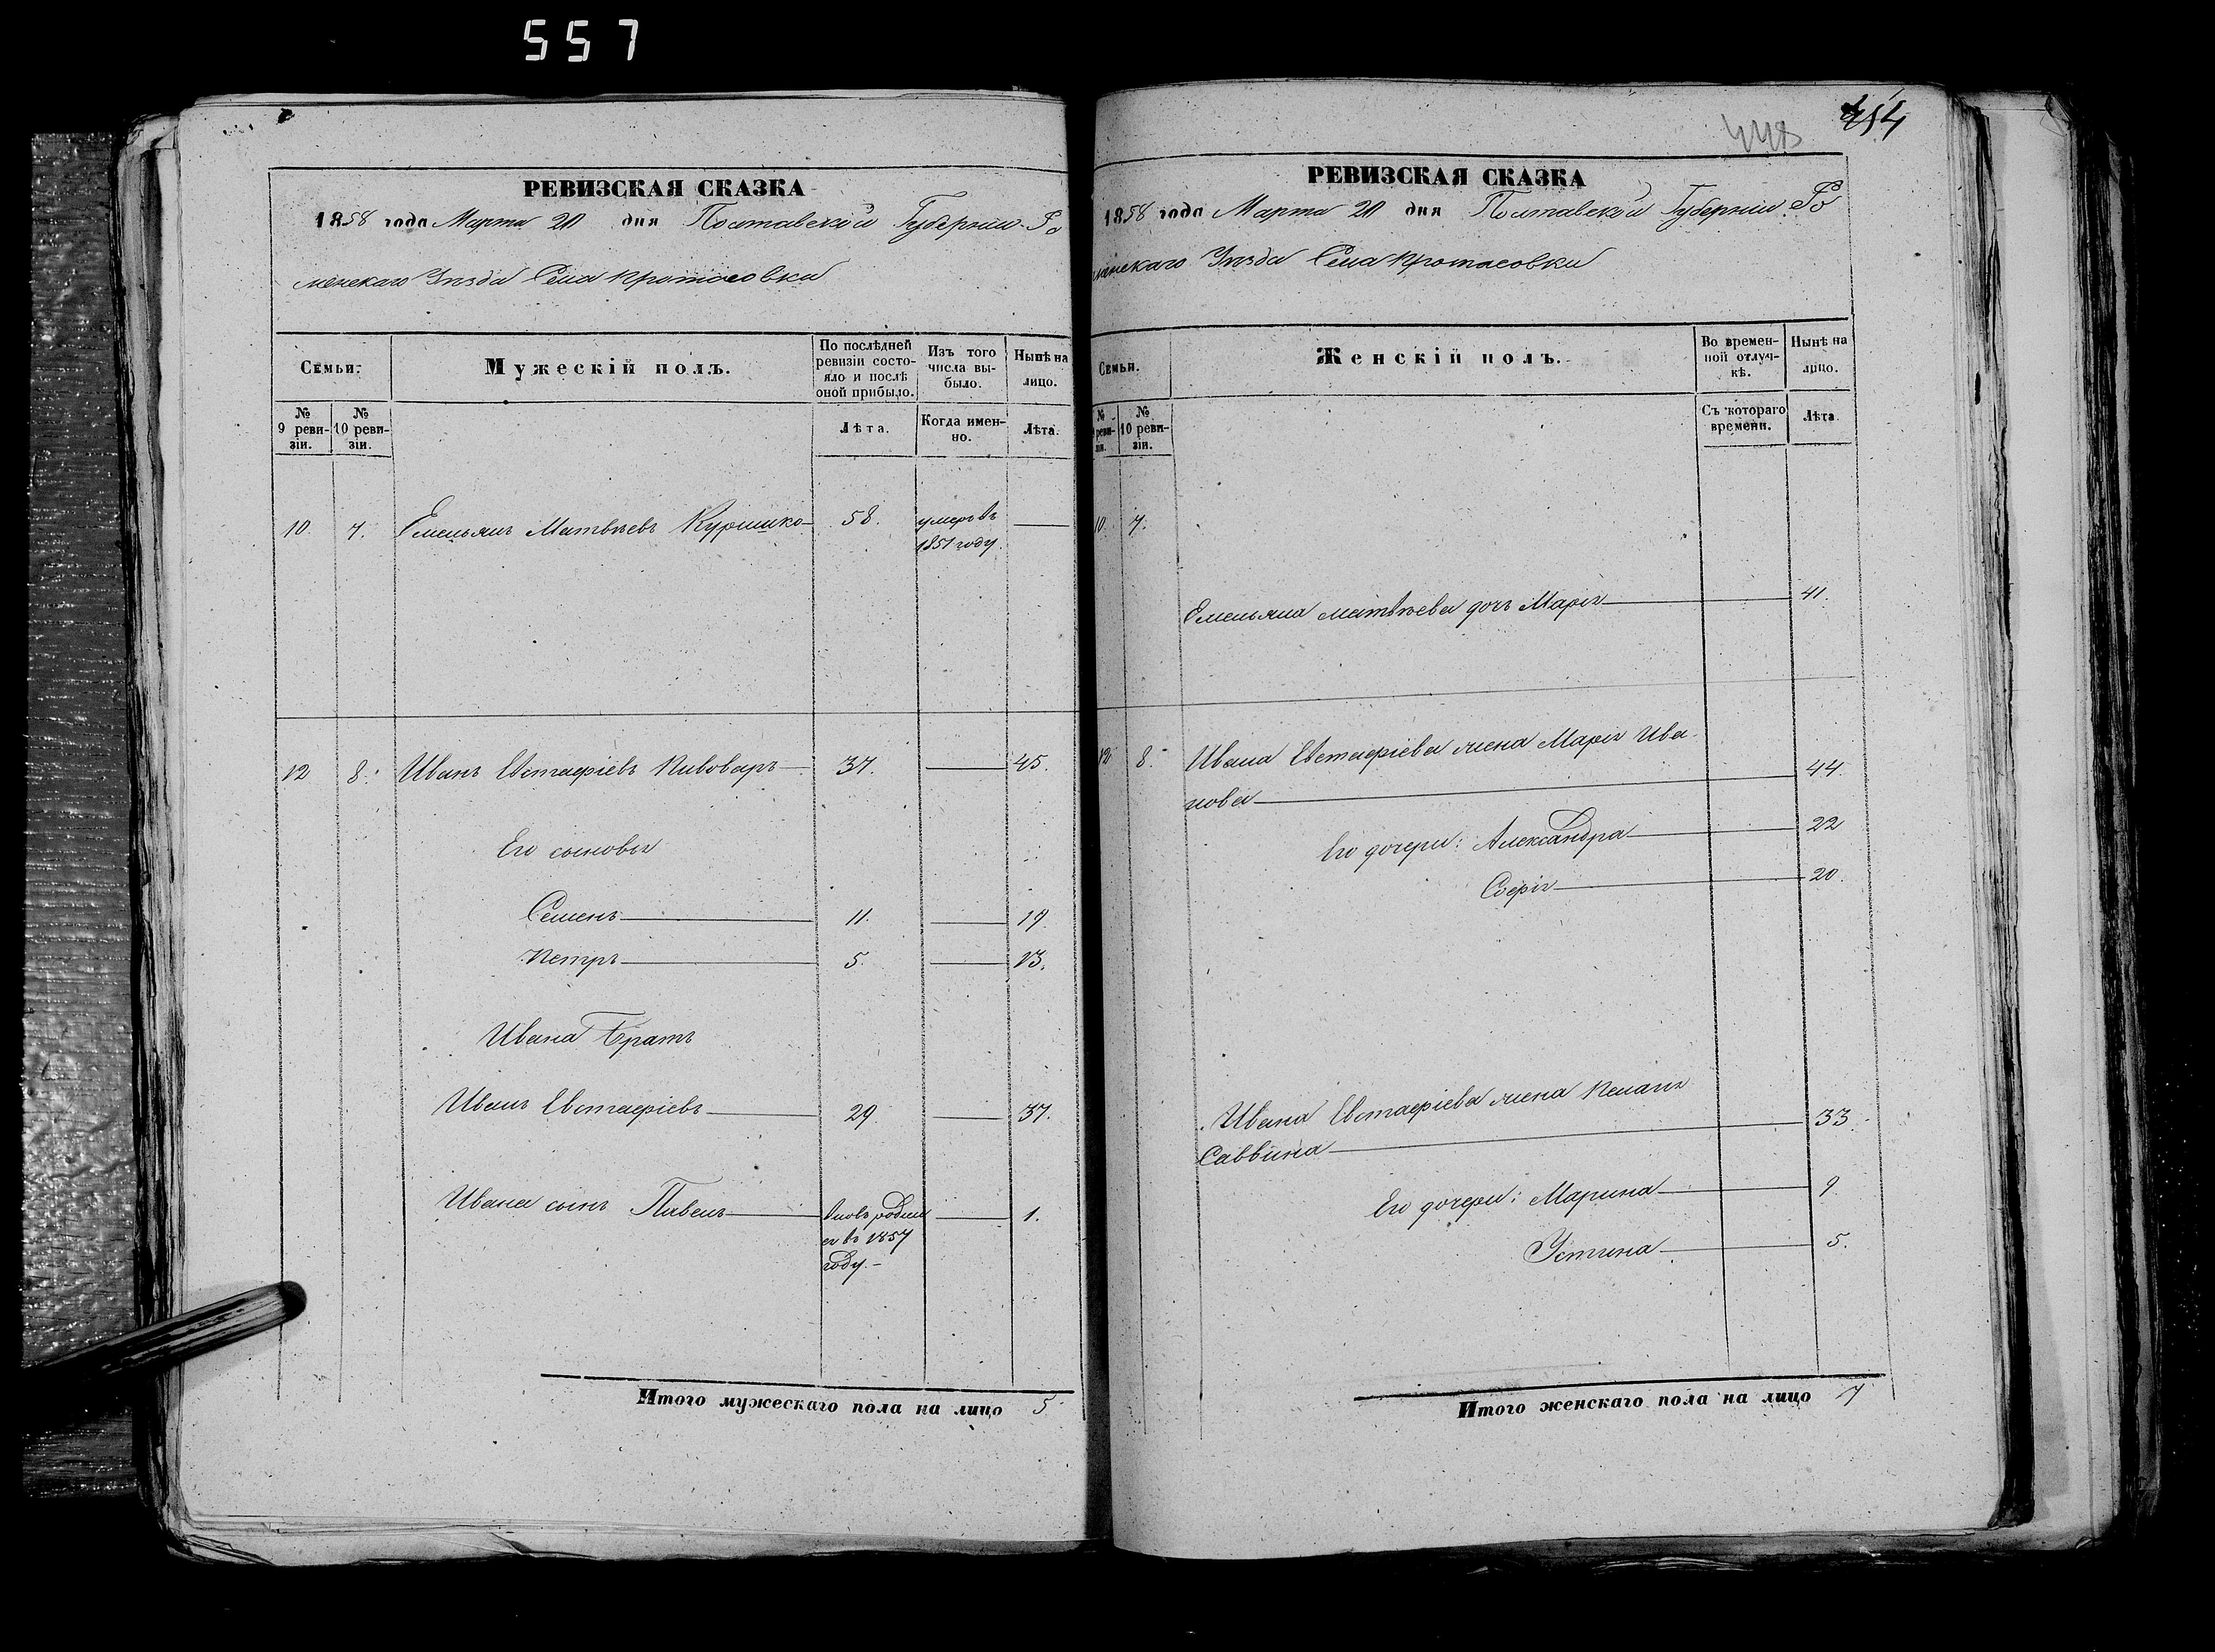 557
РЕВИЗСКАЯ СКАЗКА
1858 года Марта 20 дня Полтавской Губерніи Ро
менскаго Уѣзда Села Протасовки
Семьи.
Мужескій полъ.
По послѣдней ревизіи состояло и послѣ оной прибыло.
Изъ того числа выбыло.
Нынѣ на лицо.
№ 9 ревизіи.
№ 10 ревизіи.
Лѣта.
Когда именно.
Лѣта.
10. 7. Емельянъ Матвѣевъ 58. умеръ въ
1851 году.
12 8. Иванъ Евстафіевъ Пивоваръ 37. 45.
Его сыновья
Семенъ 11. 19
Петръ 5. 13.
Ивана Братъ
Иванъ Евстафіевъ 29 37.
Ивана сынъ Павелъ вновь родил 1.
ся въ 1857
году.
Итого мужескаго пола на лицо 5
РЕВИЗСКАЯ СКАЗКА
1858 года Марта 20 дня Полтавской Губерніи Ро
менскаго Уѣзда Села Протасовки
Семьи.
Женскій полъ.
Во временной отлучкѣ.
Нынѣ на лицо.
№ 9 ревизіи.
№ 10 ревизіи.
Съ котораго времени.
Лѣта.
10. 7.
Емельяна Матвѣева дочь Марія 41.
12 8. Ивана Евстафіева жена Марія Ива
нова 44.
Его дочери: Александра 22
Софія 20.
Ивана Евстафіева жена Пелагія
Саввина 33
Его дочери: Марина 9
Устина 5.
Итого женскаго пола на лицо 7